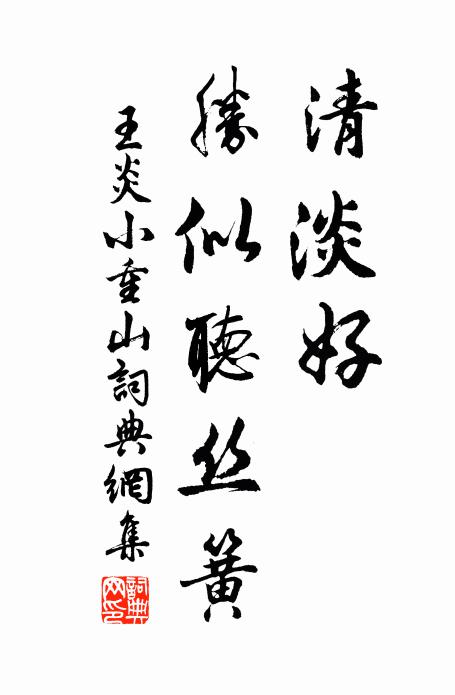 清淡好
勝似聽丝簧
王炎小重山詞典網集
詞典网印